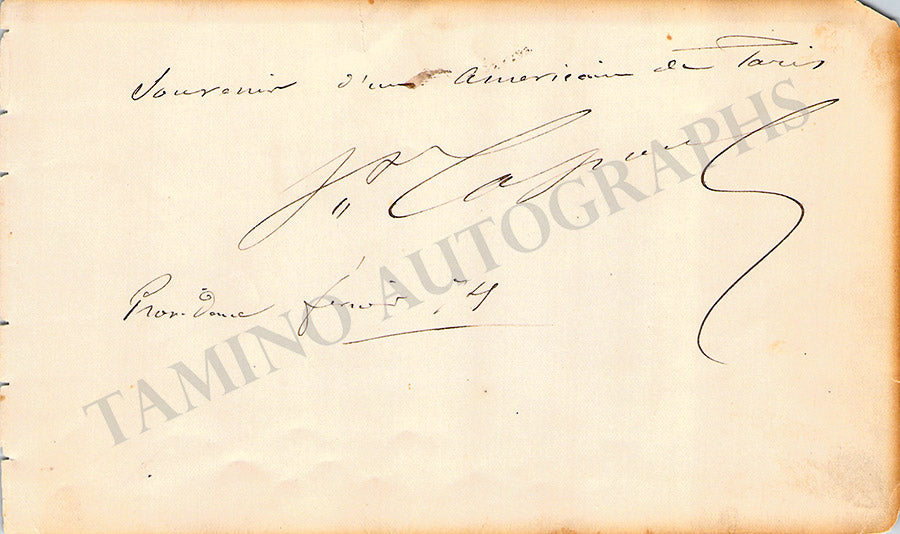 Souvenir d'un Américain de Paris
Vr Capoul
Providence février 74
TAMINO AUTOGRAPHS